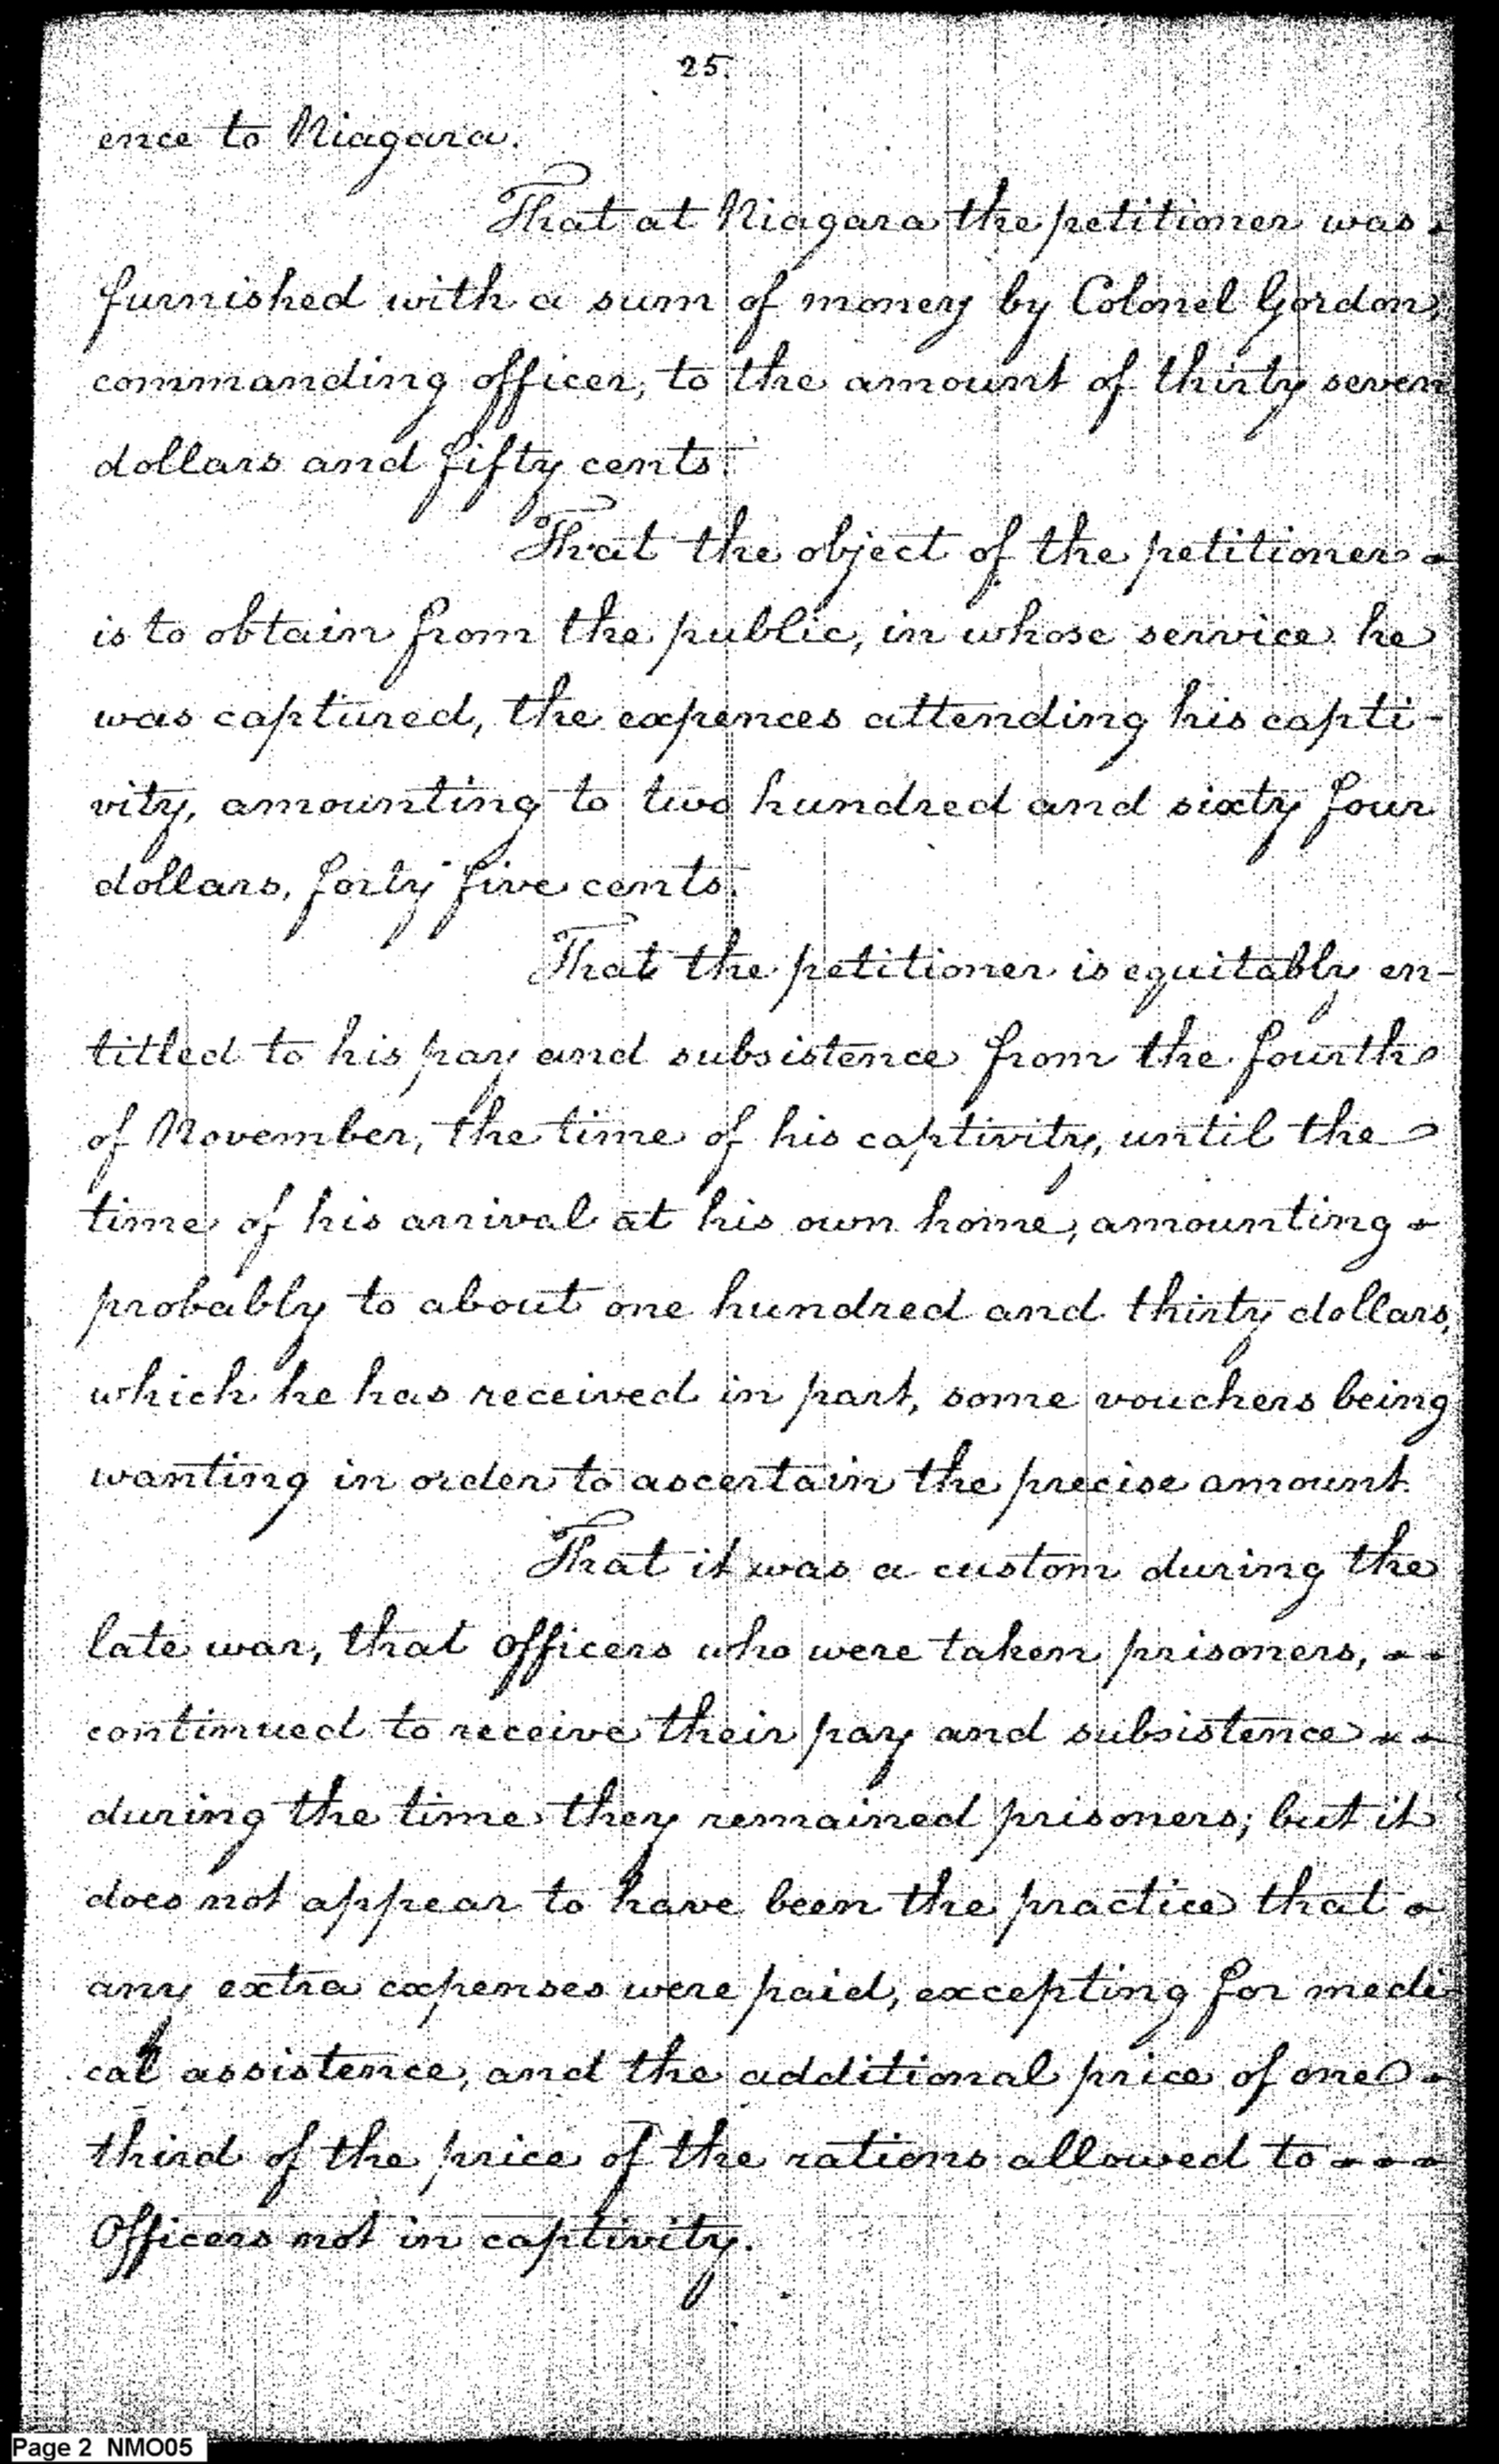 25.
ence to Niagara.
That at Niagara the petitioner was
furnished with a sum of money by Colonel Gordon,
commanding officer, to the amount of thirty seven
dollars and fifty cents.
That the object of the petitioner
is to obtain from the public, in whose service he
was captured, the expences attending his capti-
vity, amounting to two hundred and sixty four
dollars, forty five cents.
That the petitioner is equitably en-
titled to his pay and subsistence from the fourth
of November, the time of his captivity, until the
time of his arrival at his own home, amounting
probably to about one hundred and thirty dollars,
which he has received in part, some vouchers being
wanting in order to ascertain the precise amount.
That it was a custom during the
late war, that Officers who were taken prisoners,
continued to receive their pay and subsistence
during the time they remained prisoners; but it
does not appear to have been the practice that
any extra expenses were paid, excepting for medi-
cal assistence, and the additional price of one
third of the price of the rations allowed to
Officers not in captivity.
Page 2 NMO05